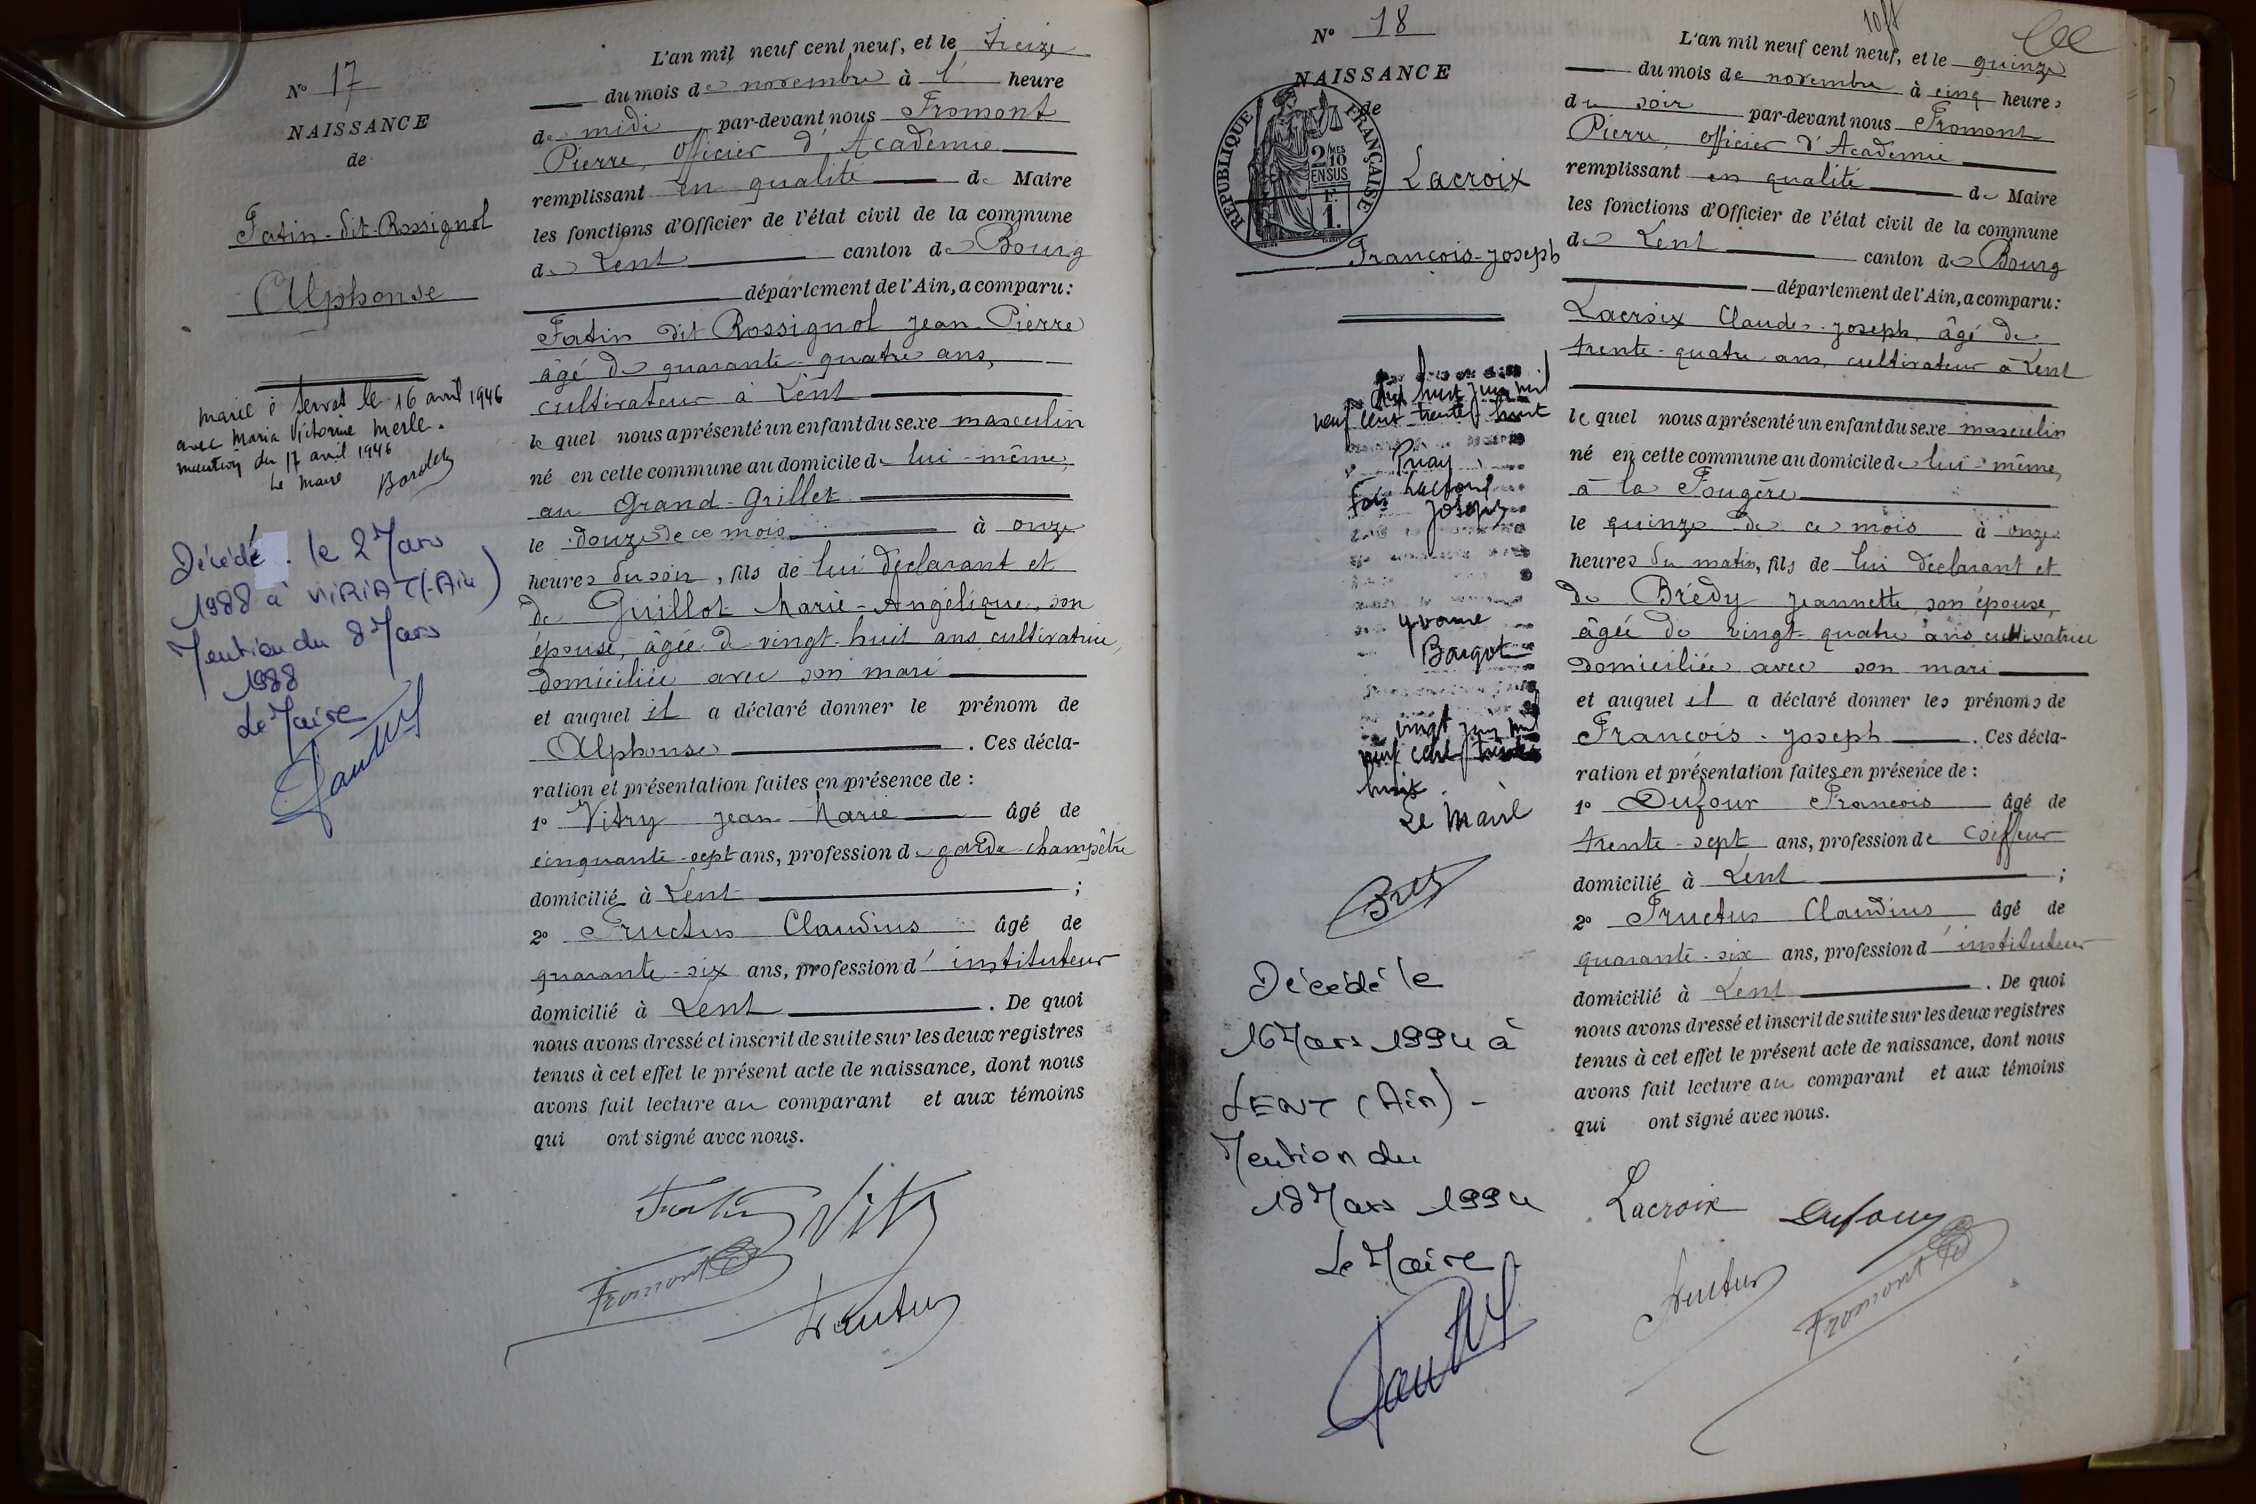 N° 17
NAISSANCE
de
Fatin-dit-Rossignol
Alphonse
Marié à Servas le 16 avril 1946
avec Maria Victorine Merle.
mention du 17 avril 1946
Le Maire
Décédé le 2 Mars
1988 à VIRIAT (Ain)
Mention du 8 Mars
1988
Le Maire
L'an mil neuf cent neuf, et le treize
du mois de novembre à l' heure
de midi par-devant nous Fromont
Pierre, Officier d'Académie
remplissant en qualité de Maire
les fonctions d'Officier de l'état civil de la commune
de Lent canton de Bourg
département de l'Ain, a comparu:
Fatin dit Rossignol Jean-Pierre
âgé de quarante-quatre ans,
cultivateur à Lent
lequel nous a présenté un enfant du sexe masculin
né en cette commune au domicile de lui-même,
au Grand-Grillet
le douze de ce mois à onze
heures du soir, fils de lui déclarant et
de Guillot Marie-Angélique, son
épouse, âgée de vingt-huit ans, cultivatrice,
domiciliée avec son mari
et auquel il a déclaré donner le prénom de
Alphonse . Ces décla-
ration et présentation faites en présence de :
1° Vitry Jean-Marie âgé de
cinquante-sept ans, profession de garde-champêtre
domicilié à Lent ;
2° Fructus Claudius âgé de
quarante-six ans, profession d'instituteur
domicilié à Lent . De quoi
nous avons dressé et inscrit de suite sur les deux registres
tenus à cet effet le présent acte de naissance, dont nous
avons fait lecture au comparant et aux témoins
qui ont signé avec nous.
Fatin Vitry
Fromont
Fructus
N° 18
NAISSANCE
de
REPUBLIQUE FRANÇAISE
2 MES
10
EN SUS
F.
1.
Lacroix
François-Joseph
dix huit juin mil
neuf cent trente huit
Lacroix
Joseph
Yvonne
vingt juin mil
neuf cent trente
huit.
Le Maire
Décédé le
16 Mars 1994 à
LENT (Ain) -
Mention du
18 Mars 1994
Le Maire
L'an mil neuf cent neuf, et le quinze
du mois de novembre à cinq heures
du soir par-devant nous Fromont
Pierre, Officier d'Académie
remplissant en qualité de Maire
les fonctions d'Officier de l'état civil de la commune
de Lent canton de Bourg
département de l'Ain, a comparu:
Lacroix Claude-Joseph, âgé de
trente-quatre ans, cultivateur à Lent
lequel nous a présenté un enfant du sexe masculin
né en cette commune au domicile de lui-même,
à la Fougère
le quinze de ce mois à onze
heures du matin, fils de lui déclarant et
de Brédy Jeannette, son épouse,
âgée de vingt-quatre ans cultivatrice
domiciliée avec son mari
et auquel il a déclaré donner les prénoms de
François-Joseph . Ces décla-
ration et présentation faites en présence de :
1° Dufour François âgé de
trente-sept ans, profession de coiffeur
domicilié à Lent ;
2° Fructus Claudius âgé de
quarante-six ans, profession d'instituteur
domicilié à Lent . De quoi
nous avons dressé et inscrit de suite sur les deux registres
tenus à cet effet le présent acte de naissance, dont nous
avons fait lecture au comparant et aux témoins
qui ont signé avec nous.
Lacroix Dufour
Fructus Fromont